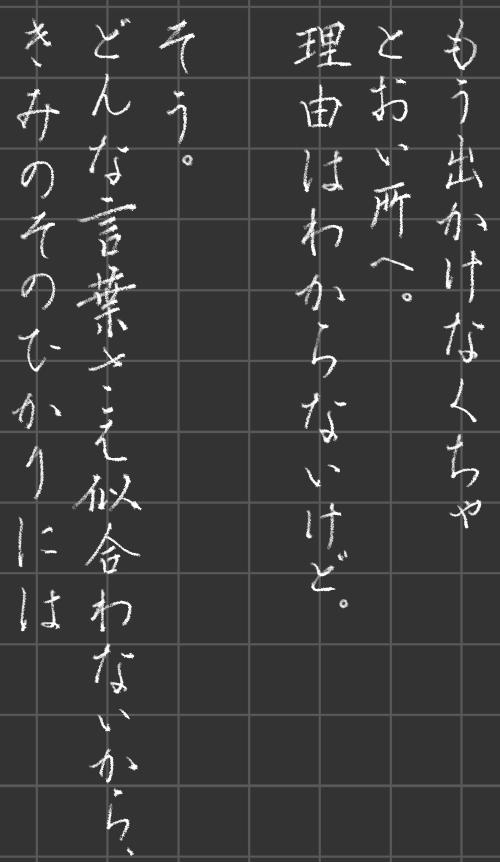 もう出かけなくちゃ
とおい所へ。
理由はわからないけど。
そう。
どんな言葉さえ似合わないから、
きみのそのひかりには